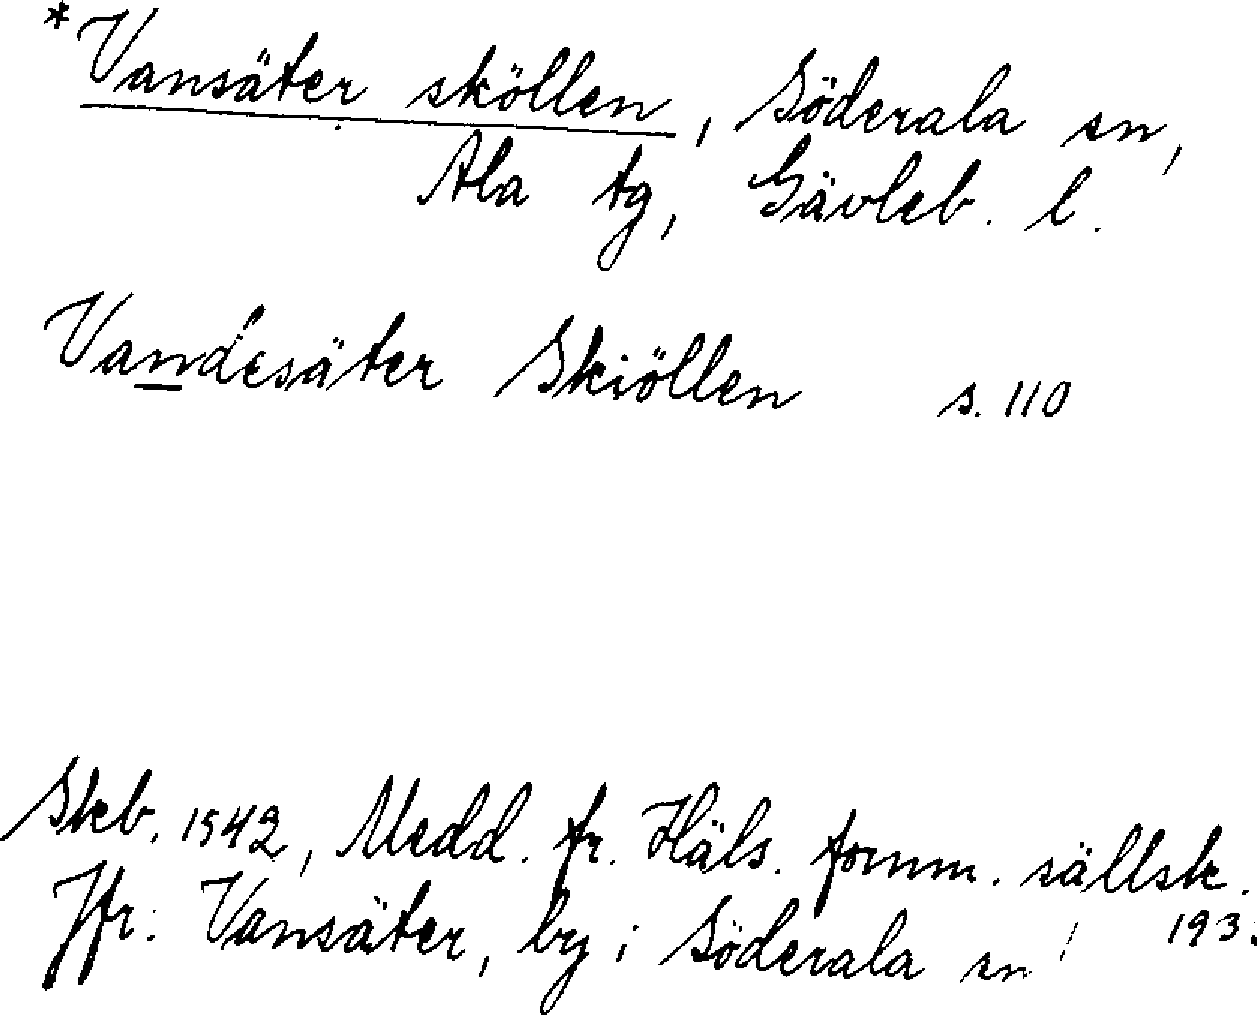 *Vansäter sköllen, Söderala sn,
Ala tg, Gävleb. l.
Vandesäter Skiöllen s. 110
Skb. 1542, Medd. fr. Häls. fornm. sällsk.
193
Jfr: Vansäter, by i Söderala sn